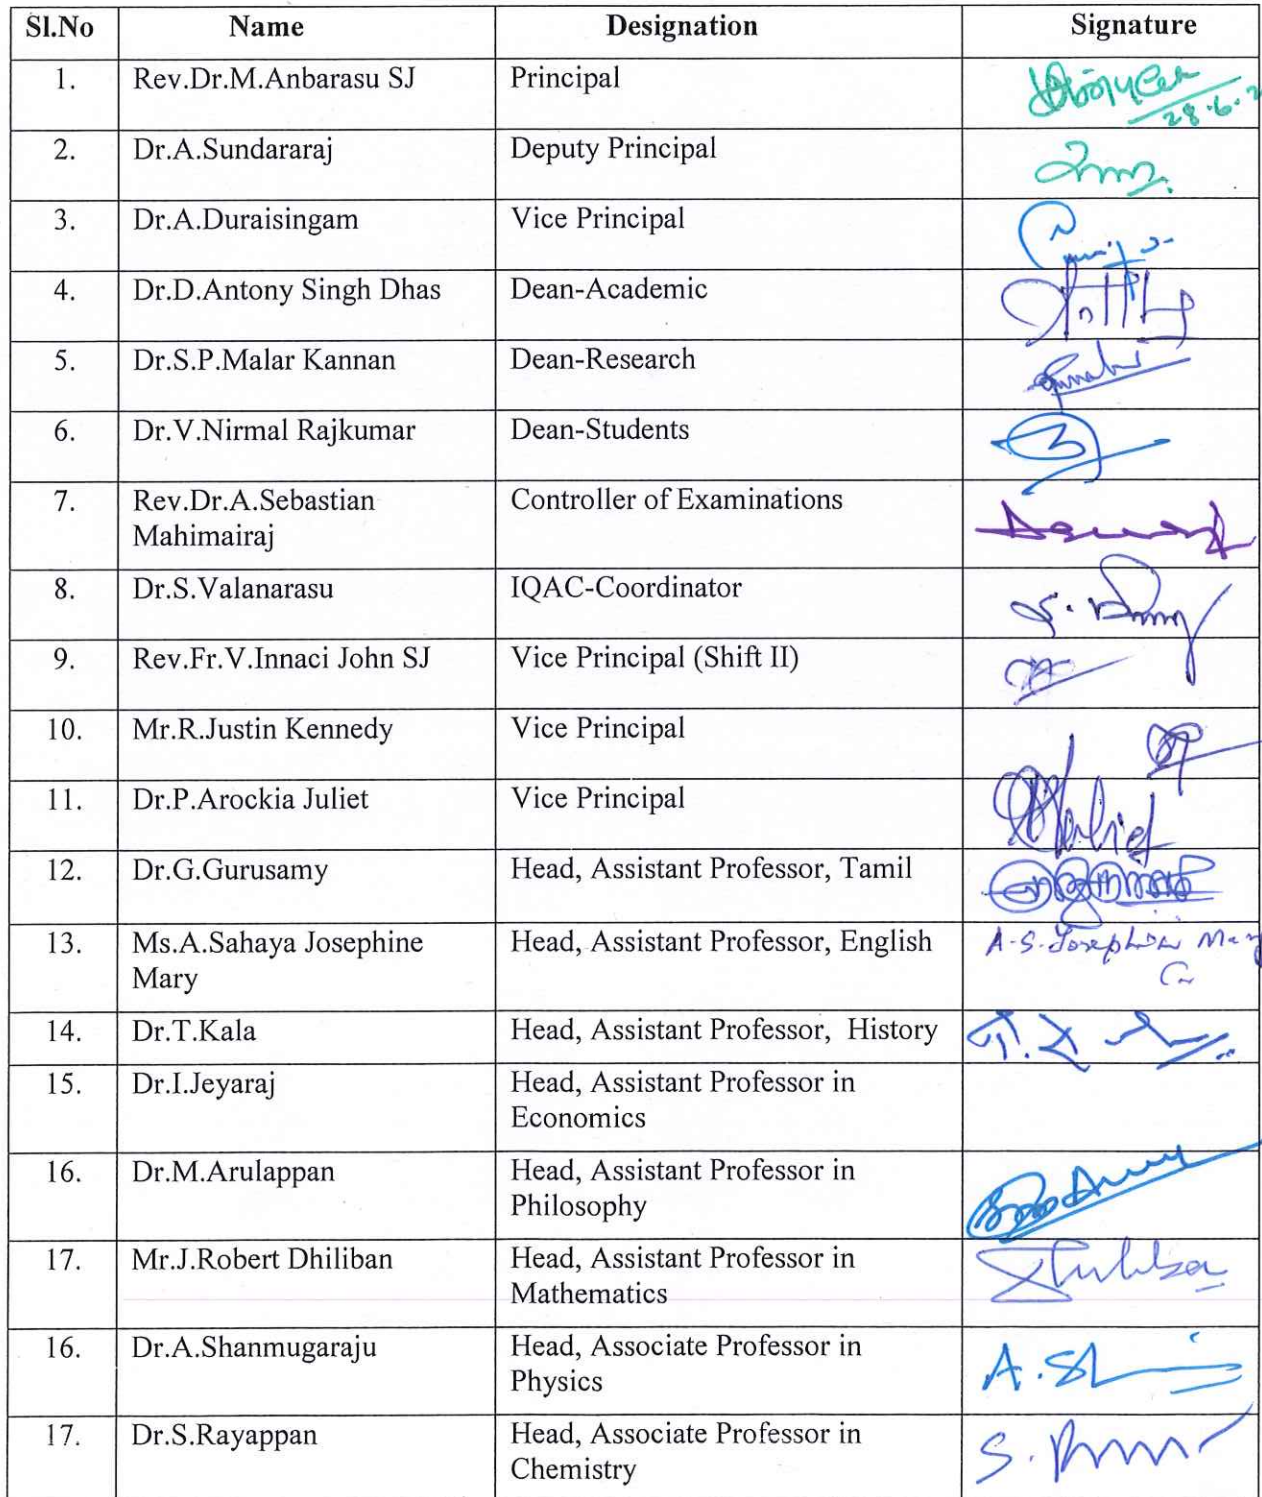 Sl.No Name Designation Signature
1. Rev.Dr.M.Anbarasu SJ Principal
28.6.2
2. Dr.A.Sundararaj Deputy Principal
3. Dr.A.Duraisingam Vice Principal
4. Dr.D.Antony Singh Dhas Dean-Academic
5. Dr.S.P.Malar Kannan Dean-Research
6. Dr.V.Nirmal Rajkumar Dean-Students
7. Rev.Dr.A.Sebastian Controller of Examinations
Mahimairaj
8. Dr.S.Valanarasu IQAC-Coordinator
9. Rev.Fr.V.Innaci John SJ Vice Principal (Shift II)
10. Mr.R.Justin Kennedy Vice Principal
11. Dr.P.Arockia Juliet Vice Principal
12. Dr.G.Gurusamy Head, Assistant Professor, Tamil
13. Ms.A.Sahaya Josephine Head, Assistant Professor, English A-S-Josephin
Mary
14. Dr.T.Kala Head, Assistant Professor, History
15. Dr.I.Jeyaraj Head, Assistant Professor in
Economics
16. Dr.M.Arulappan Head, Assistant Professor in
Philosophy
17. Mr.J.Robert Dhiliban Head, Assistant Professor in
Mathematics
16. Dr.A.Shanmugaraju Head, Associate Professor in
Physics
17. Dr.S.Rayappan Head, Associate Professor in
Chemistry